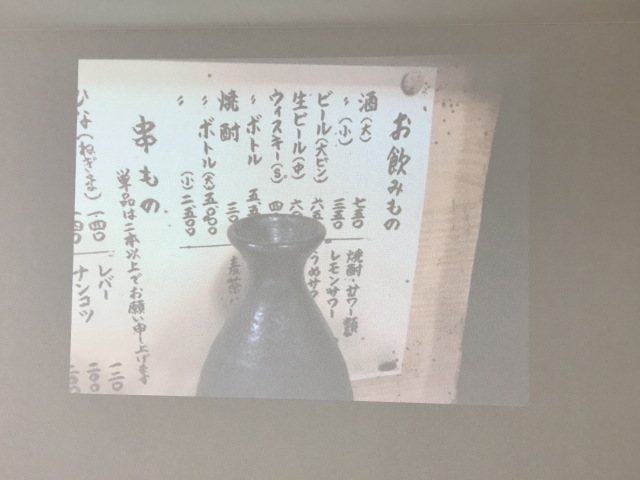 お飲みもの
酒(大) 七五〇
〃(小) 三五〇
ビール(大ビン) 六五
生ビール(中) 六〇
ウィスキー(S) 四
〃ボトル 五五
焼酎 三〇
〃ボトル(大)五〇〇〇
〃(小)二、五〇〇
焼酎・サワー類
レモンサワー
うめサワ
串もの
単品は二本以上でお願い申し上げます
ひな(ねぎま) 一四〇
レバー 一二〇
ナンコツ 二〇〇